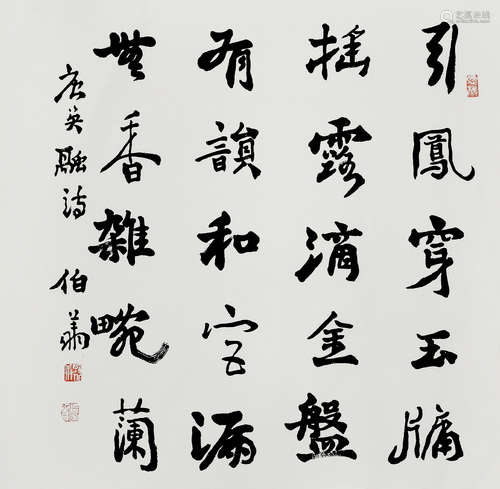 引鳳穿玉牖
摇露滴金盤
有韻和宮漏
無香雜畹蘭
唐吴融诗
伯